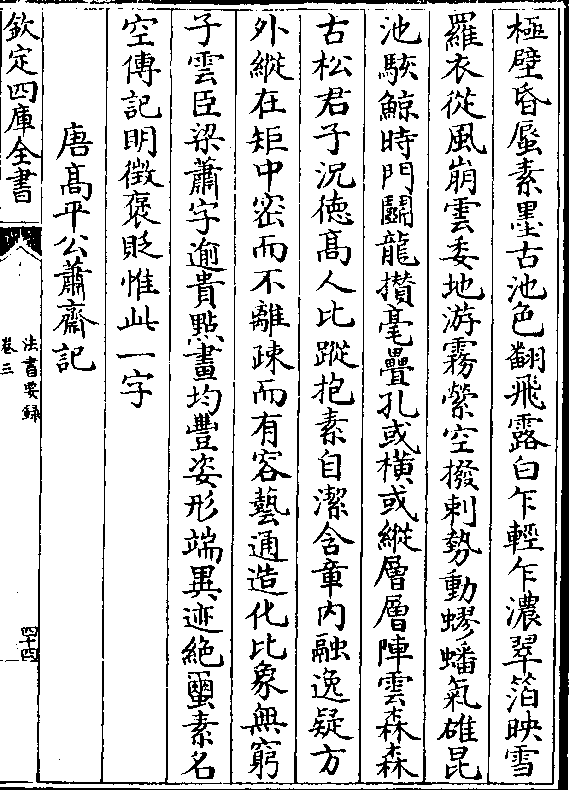 極壁昏蜃素墨古池色翻飛露白乍輕乍濃翠箔映雪
羅衣從風崩雲委地游霧縈空撥剌勢動蟉蟠氣雄昆
池駭鯨時門鬭龍攅毫疊孔或橫或縱層層陣雲森森
古松君子況徳髙人比蹤抱素自潔含章内融逸疑方
外縱在矩中宻而不離疎而有容藝通造化比象無窮
子雲臣梁蕭字逾貴㸃畫均豐姿形端異迹絶壐素名
空傳記明徵褒貶惟此一字
唐髙平公蕭齋記
欽定四庫全書
法書要録
卷三
四十四